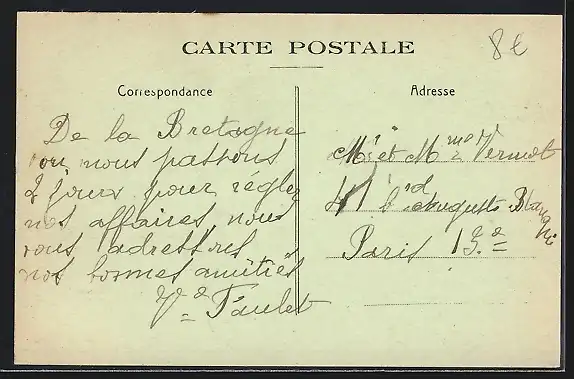 CARTE POSTALE
8€
Correspondance
De la Bretagne
ou nous passons
2 jours pour régler
nos affaires, nous
vous adressons
nos bonnes amitiés
Adresse
Mr et Mme Vermot
41 Bd Auguste Blanqui
Paris 13e